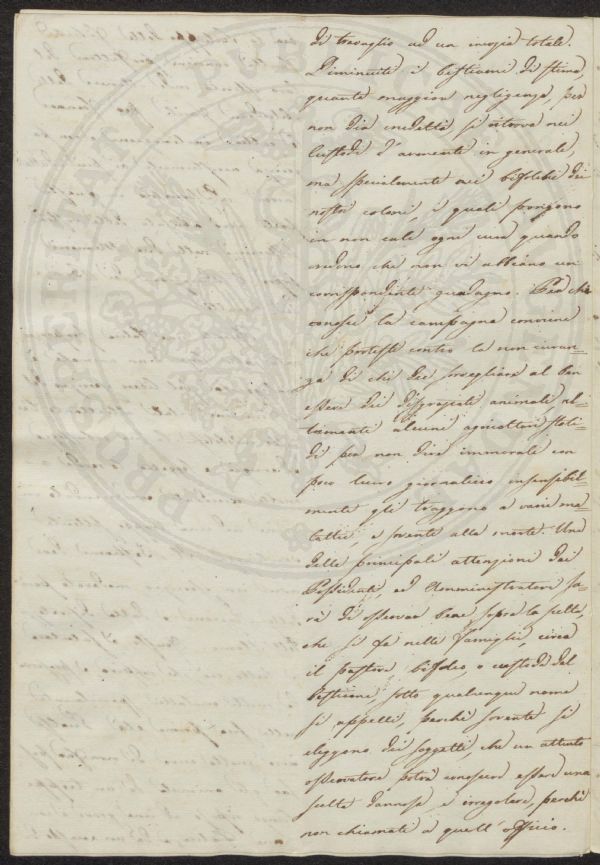 di travaglio ad un inopia totale.
Diminuite i bestiami di stima,
quanta maggior negligenza, per
non dir incredetta si ritrova nei
custodi d'armenti in generale,
ma specialmente nei bifolchi dei
nostri coloni, i quali pongono
in non cale ogni cura quando
vedono che non vi abbiano un
corrispondente guadagno. Per chi
conosce la campagna conviene
che protesti contro la non curan-
za di chi dee sorvegliare al ben
essere dei disgraziati animali, al-
trimenti alcuni agricoltori stoli-
di per non dire immorali con
poco lucro giornaliero insensibil-
mente gli traggono a varie ma-
lattie, e sovente alla morte. Una
delle principali attenzioni dei
Possidenti, ed Amministratori sa-
rà di osservar bene sopra la scelta,
che si fa nelle famiglie, circa
il pastore bifolco, o custode del
bestiame, sotto qualunque nome
si appelli, perchè sovente si
eleggono dei soggetti, che un attento
osservatore potrà conoscere essere una
scelta dannosa e irregolare, perchè
non chiamati a quell'officio.
PROSPERITATI PUBLICAE